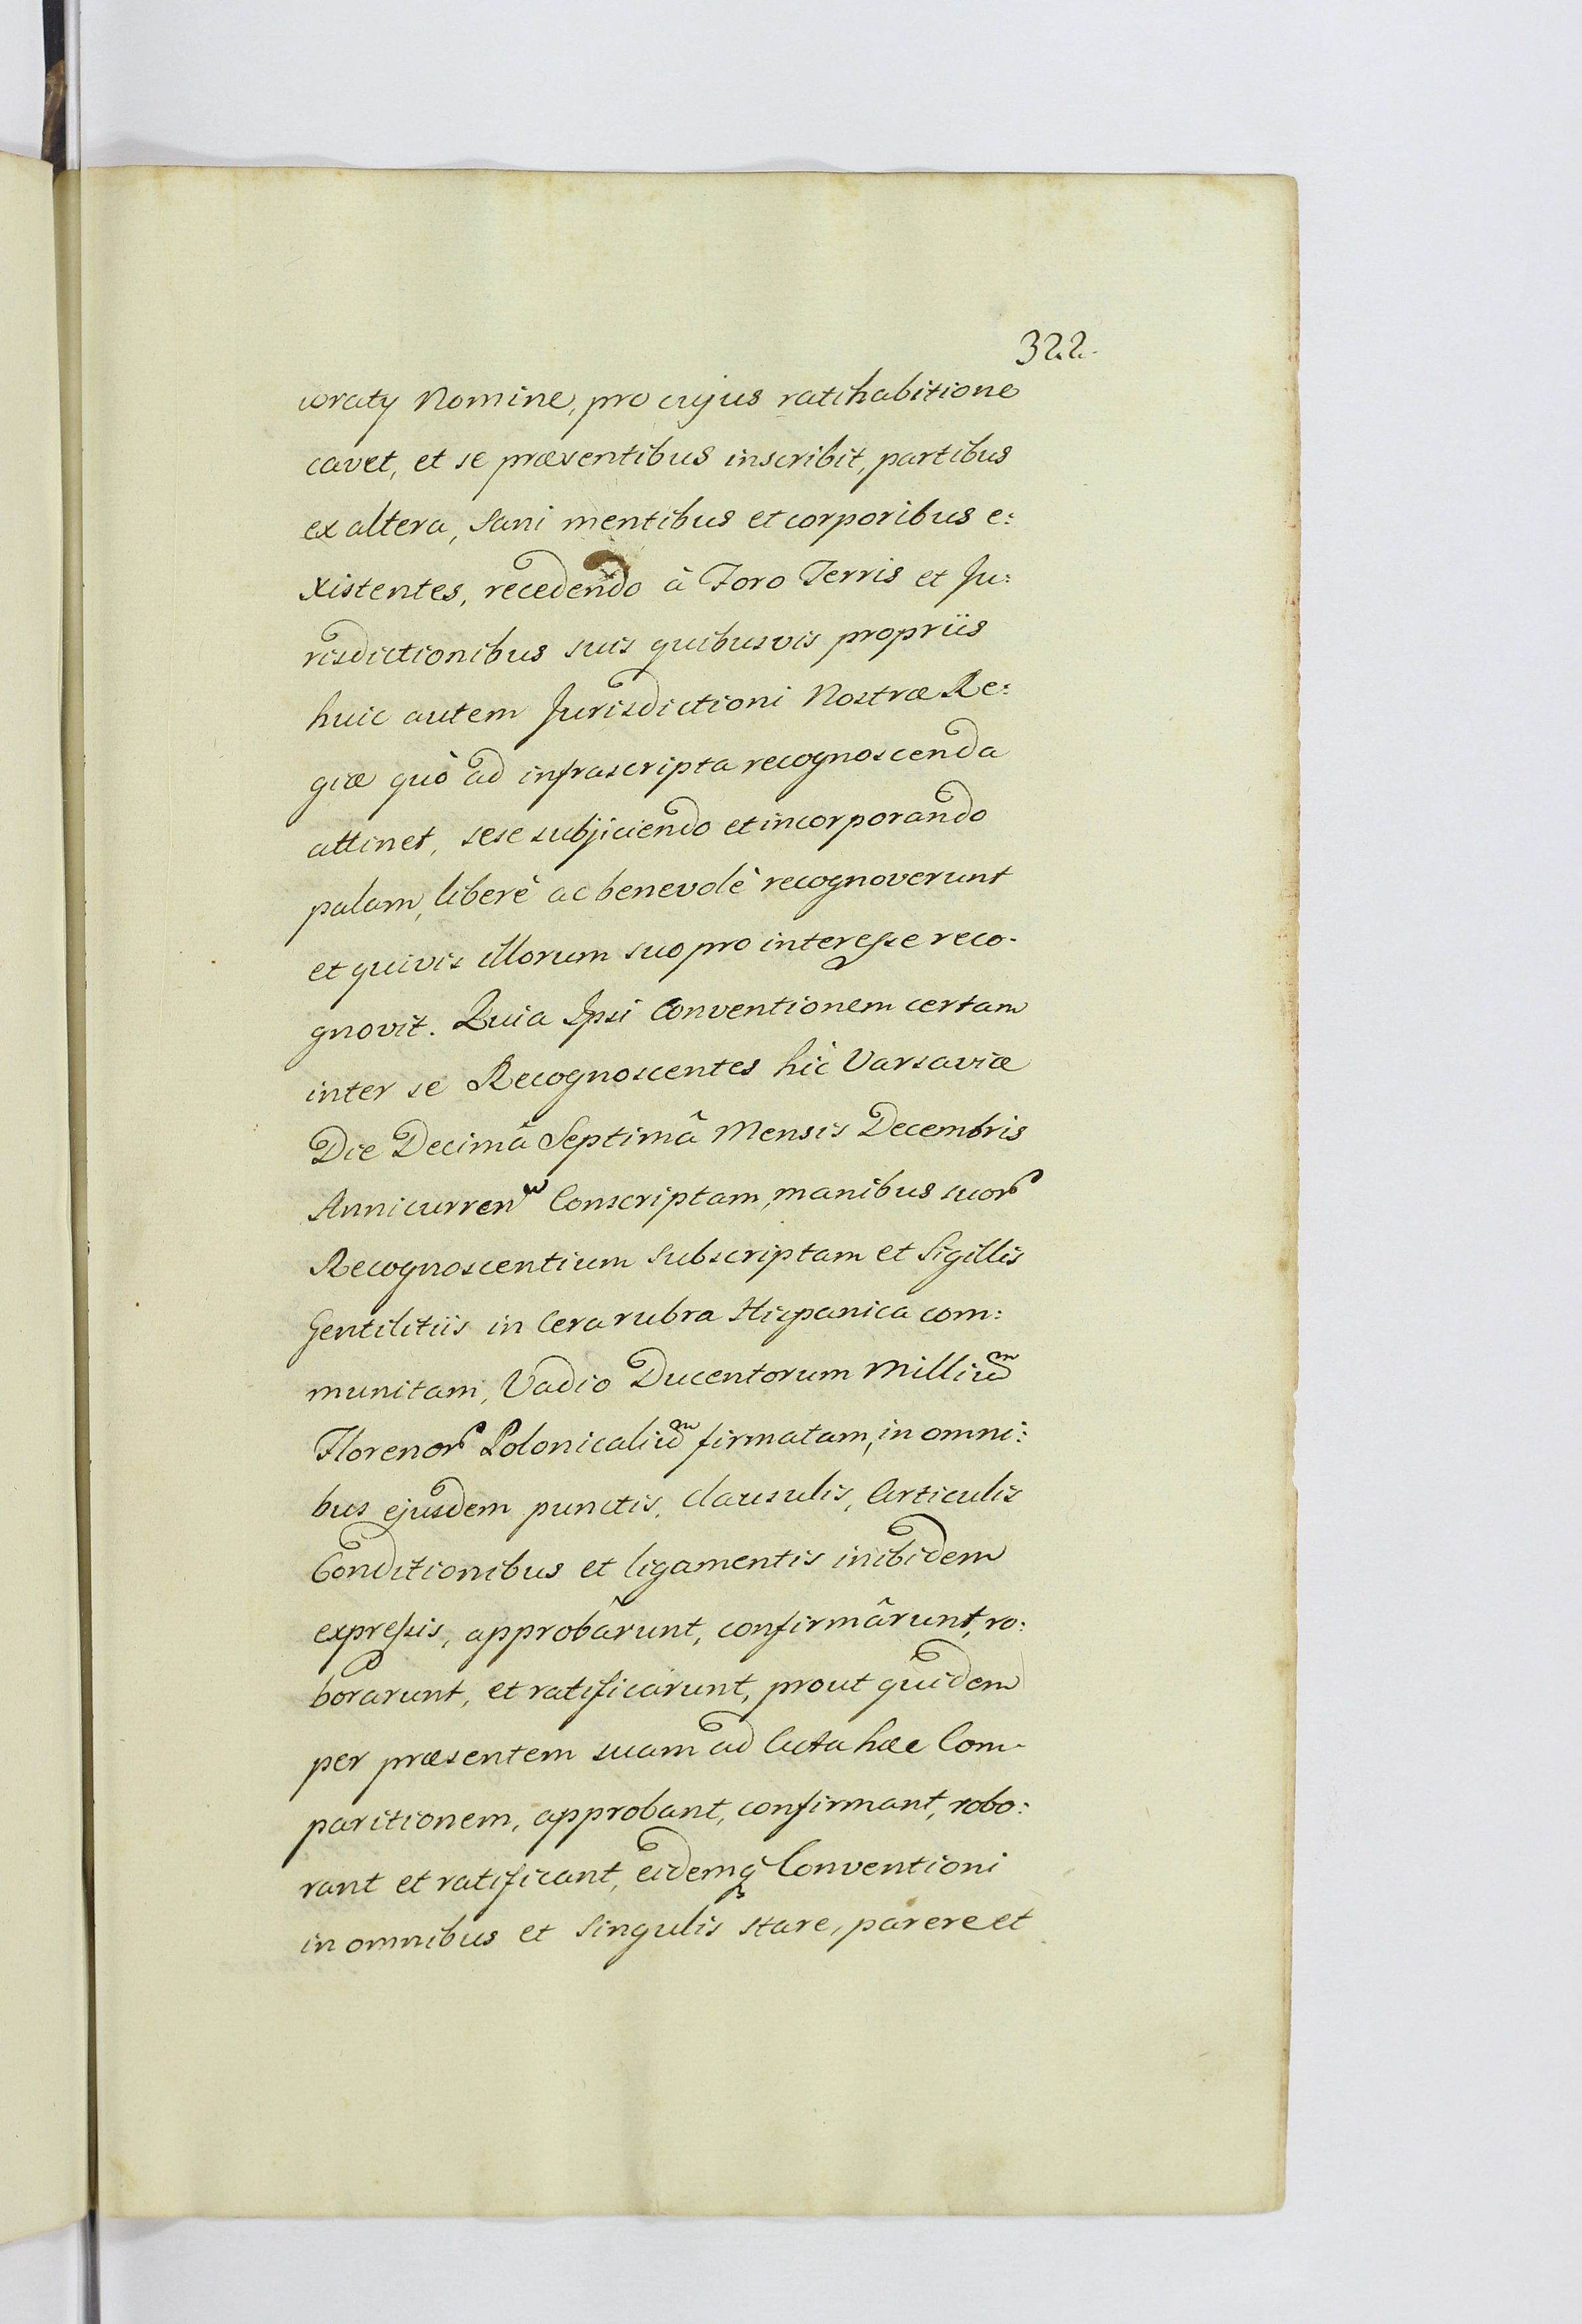 322.
woraty Nomine, pro cujus ratihabitione
cavet, et se præsentibus inscribit, partibus
ex altera, Sani mentibus et corporibus e:
xistentes, recedendo à Foro Terris et Ju:
risdictionibus suis quibusvis propriis
huic autem Jurisdictioni Nostræ Re:
giæ quò ad infrascripta recognoscenda
attinet, sese subjiciendo et incorporando
palam, liberè ac benevolè recognoverunt
et quivis illorum suo pro interesse reco-
gnovit. Quia Ipsi Conventionem certam
inter se Recognoscentes hìc Varsaviæ
Die Decimâ Septimâ Mensis Decembris
Anni curren Conscriptam, manibus suor
Recognoscentium Subscriptam et Sigillis
Gentilitiis in Cera rubra Hispanica com:
munitam, Vadio Ducentorum Milliu͂m
Florenor Polonicaliu͂m firmatam, in omni:
bus ejusdem punctis, Clausulis, Articulis
Conditionibus et ligamentis inibidem
expressis, approbârunt, confirmârunt, ro:
borarunt, et ratificarunt, prout quidem
per præsentem suam ad Acta hæc Com-
paritionem, approbant, confirmant, robo:
rant et ratificant, eidemq Conventioni
in omnibus et Singulis stare, parere et